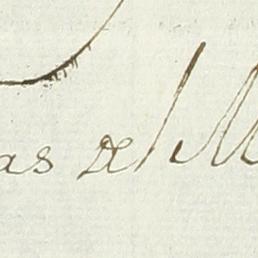 as del M